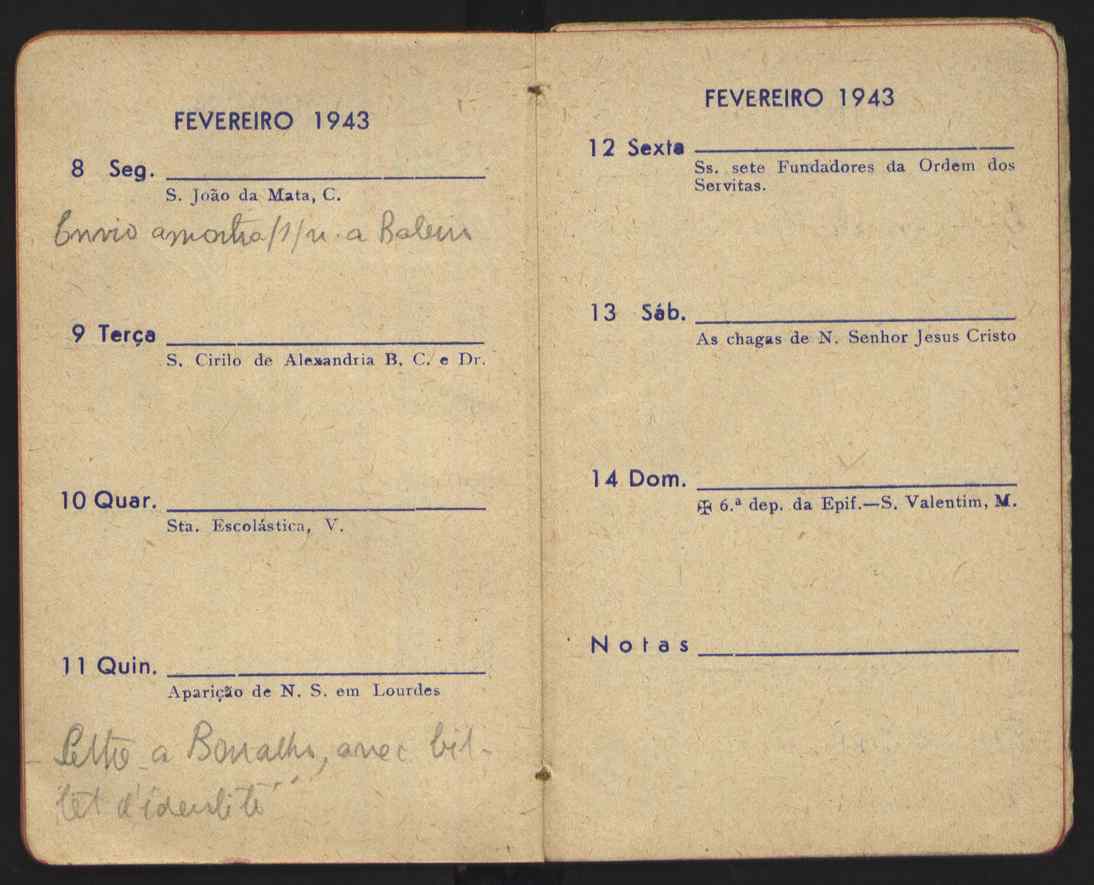 FEVEREIRO 1943
8 Seg.
S. João da Mata, C.
Envio amostra/1/
9 Terça
S. Cirilo de Alexandria B. C. e Dr.
10 Quar.
Sta. Escolástica, V.
11 Quin.
Aparição de N. S. em Lourdes
Lettre a Borralho, avec bil-
let d'identité
FEVEREIRO 1943
12 Sexta
Ss. sete Fundadores da Ordem dos
Servitas.
13 Sáb.
As chagas de N. Senhor Jesus Cristo
14 Dom.
✠ 6.ª dep. da Epif.—S. Valentim, M.
Notas